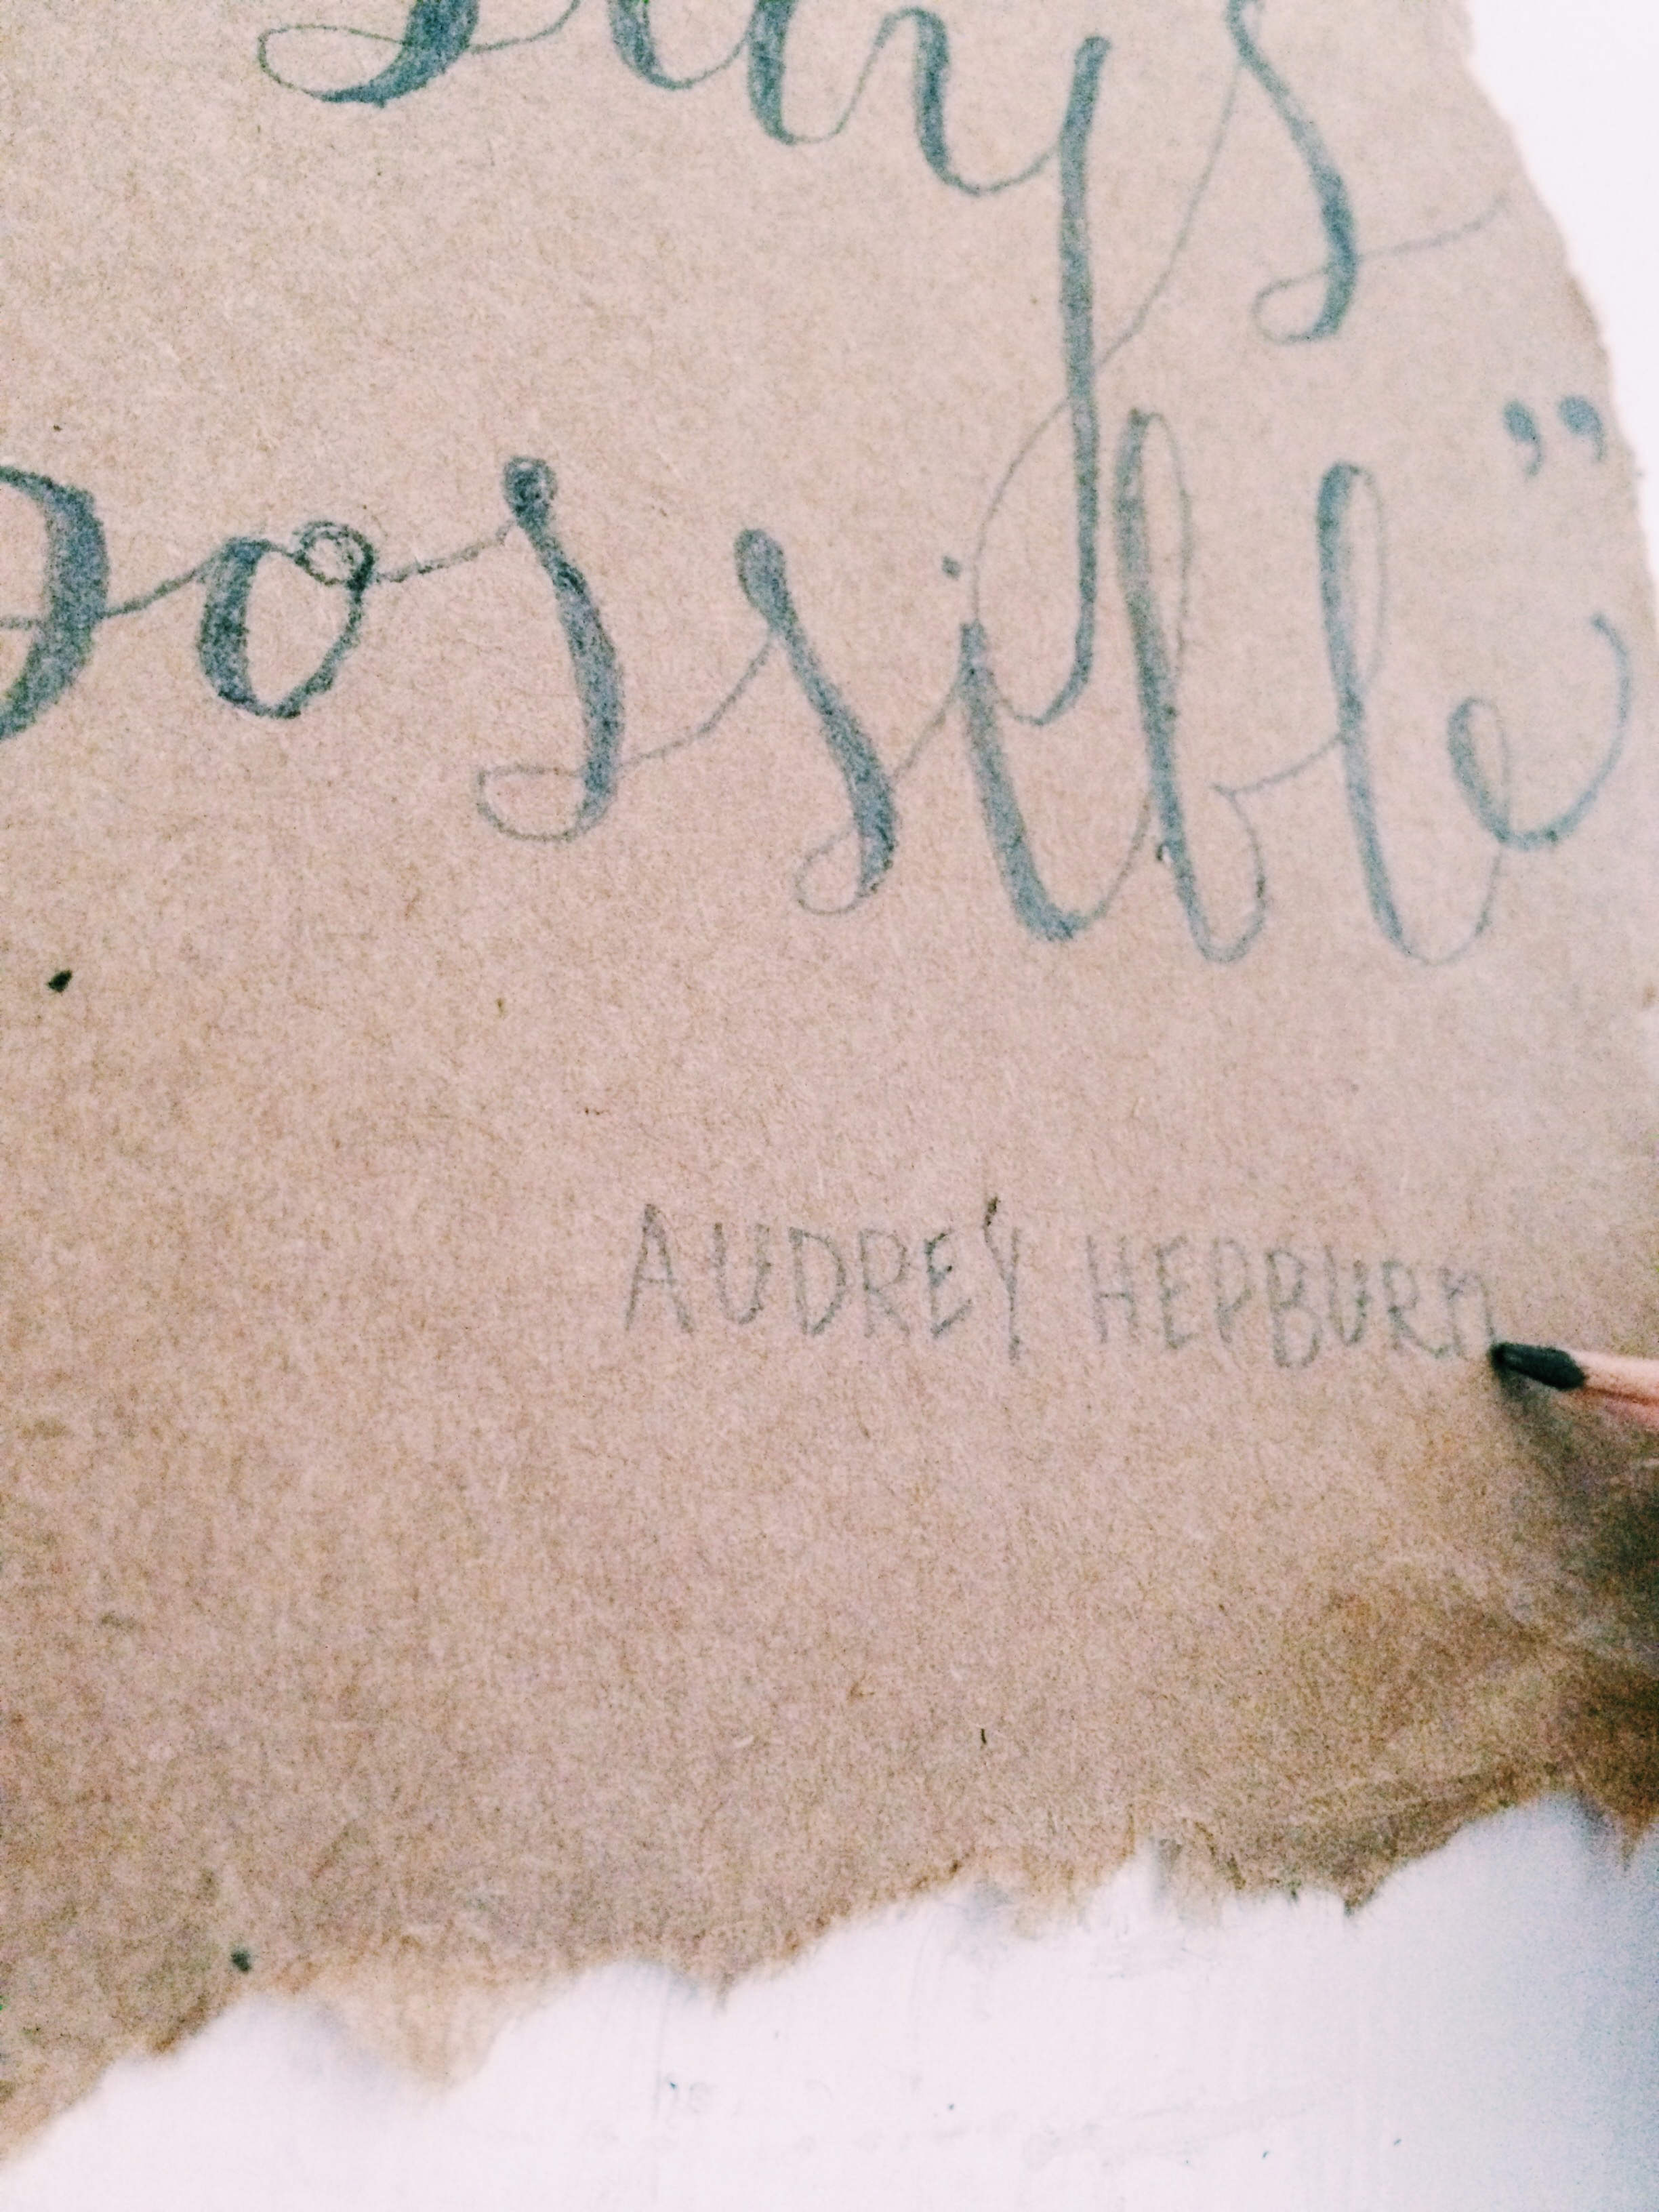 says
possible”
AUDREY HEPBURN